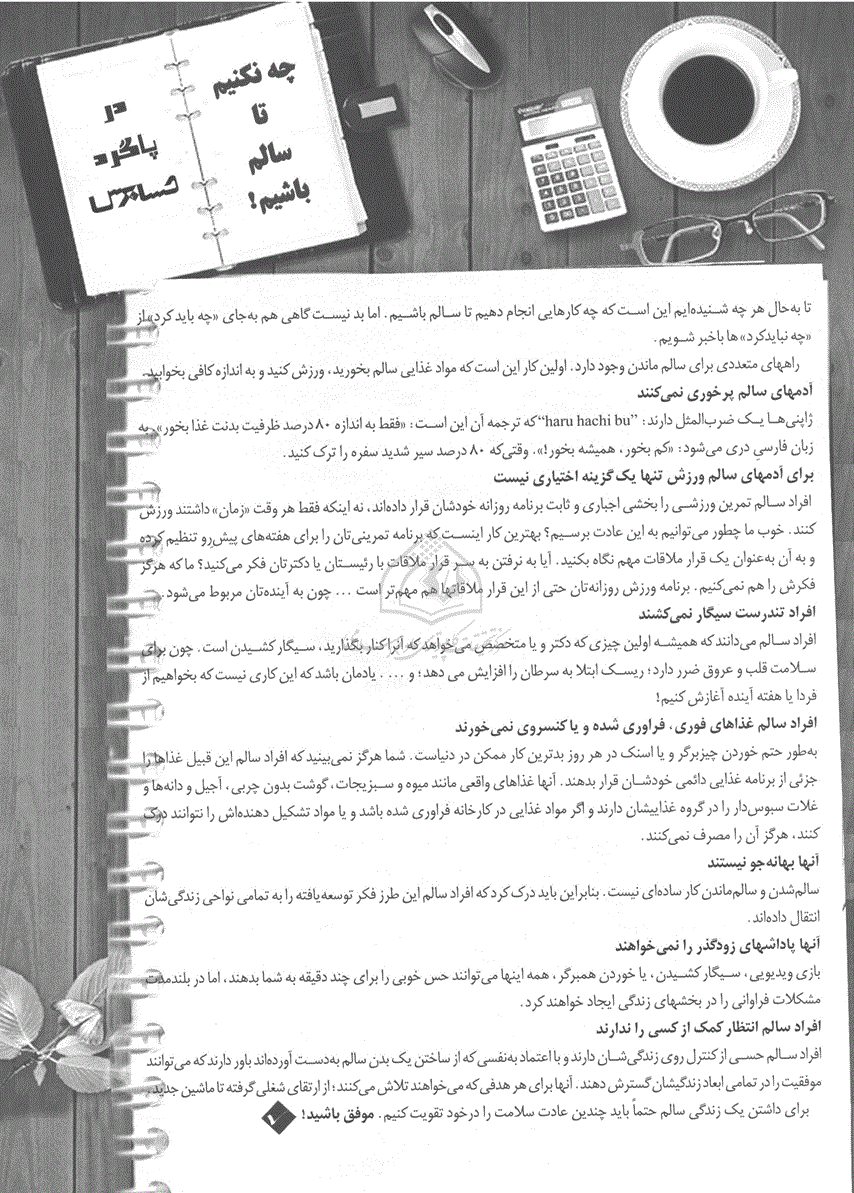 چه نکنیم
تا
سالم
باشیم!
در
پاگرد
تا به‌حال هر چه شنیده‌ایم این است که چه کارهایی انجام دهیم تا سالم باشیم. اما بد نیست گاهی هم به‌جای «چه باید کرد» از
«چه نبایدکرد» ها باخبر شویم.
راههای متعددی برای سالم ماندن وجود دارد. اولین کار این است که مواد غذایی سالم بخورید، ورزش کنید و به اندازه کافی بخوابید.
آدمهای سالم پرخوری نمی‌کنند
ژاپنی‌ها یک ضرب‌المثل دارند: “haru hachi bu”که ترجمه آن این است: «فقط به اندازه ۸۰ درصد ظرفیت بدنت غذا بخور». به
زبان فارسیِ دری می‌شود: «کم بخور، همیشه بخور!». وقتی‌که ۸۰ درصد سیر شدید سفره را ترک کنید.
برای آدمهای سالم ورزش تنها یک گزینه اختیاری نیست
افراد سالم تمرین ورزشی را بخشی اجباری و ثابت برنامه روزانه خودشان قرار داده‌اند، نه اینکه فقط هر وقت «زمان» داشتند ورزش
کنند. خوب ما چطور می‌توانیم به این عادت برسیم؟ بهترین کار اینست که برنامه تمرینی‌تان را برای هفته‌های پیش‌رو تنظیم کرده
و به آن به‌عنوان یک قرار ملاقات مهم نگاه بکنید. آیا به نرفتن به سر قرار ملاقات با رئیستان یا دکترتان فکر می‌کنید؟ ما که هرگز
فکرش را هم نمی‌کنیم. برنامه ورزش روزانه‌تان حتی از این قرار ملاقاتها هم مهم‌تر است ... چون به آینده‌تان مربوط می‌شود.
افراد تندرست سیگار نمی‌کشند
افراد سالم می‌دانند که همیشه اولین چیزی که دکتر و یا متخصص می‌خواهد که آنرا کنار بگذارید، سیگار کشیدن است. چون برای
سلامت قلب و عروق ضرر دارد؛ ریسک ابتلا به سرطان را افزایش می دهد؛ و .... یادمان باشد که این کاری نیست که بخواهیم از
فردا یا هفته آینده آغازش کنیم!
افراد سالم غذاهای فوری، فراوری شده و یا کنسروی نمی‌خورند
به‌طور حتم خوردن چیزبرگر و یا اسنک در هر روز بدترین کار ممکن در دنیاست. شما هرگز نمی‌بینید که افراد سالم این قبیل غذاها را
جزئی از برنامه غذایی دائمی خودشان قرار بدهند. آنها غذاهای واقعی مانند میوه و سبزیجات، گوشت بدون چربی، آجیل و دانه‌ها و
غلات سبوس‌دار را در گروه غذاییشان دارند و اگر مواد غذایی در کارخانه فراوری شده باشد و یا مواد تشکیل دهنده‌اش را نتوانند درک
کنند، هرگز آن را مصرف نمی‌کنند.
آنها بهانه‌جو نیستند
سالم‌شدن و سالم‌ماندن کار ساده‌ای نیست. بنابراین باید درک کرد که افراد سالم این طرز فکر توسعه‌یافته را به تمامی نواحی زندگی‌شان
انتقال داده‌اند.
آنها پاداشهای زودگذر را نمی‌خواهند
بازی ویدیویی، سیگار کشیدن، یا خوردن همبرگر، همه اینها می‌توانند حس خوبی را برای چند دقیقه به شما بدهند، اما در بلندمدت
مشکلات فراوانی را در بخشهای زندگی ایجاد خواهند کرد.
افراد سالم انتظار کمک از کسی را ندارند
افراد سالم حسی از کنترل روی زندگی‌شان دارند و با اعتماد به‌نفسی که از ساختن یک بدن سالم به‌دست آورده‌اند باور دارند که می‌توانند
موفقیت را در تمامی ابعاد زندگیشان گسترش دهند. آنها برای هر هدفی که می‌خواهند تلاش می‌کنند؛ از ارتقای شغلی گرفته تا ماشین جدید.
برای داشتن یک زندگی سالم حتماً باید چندین عادت سلامت را درخود تقویت کنیم. موفق باشید!